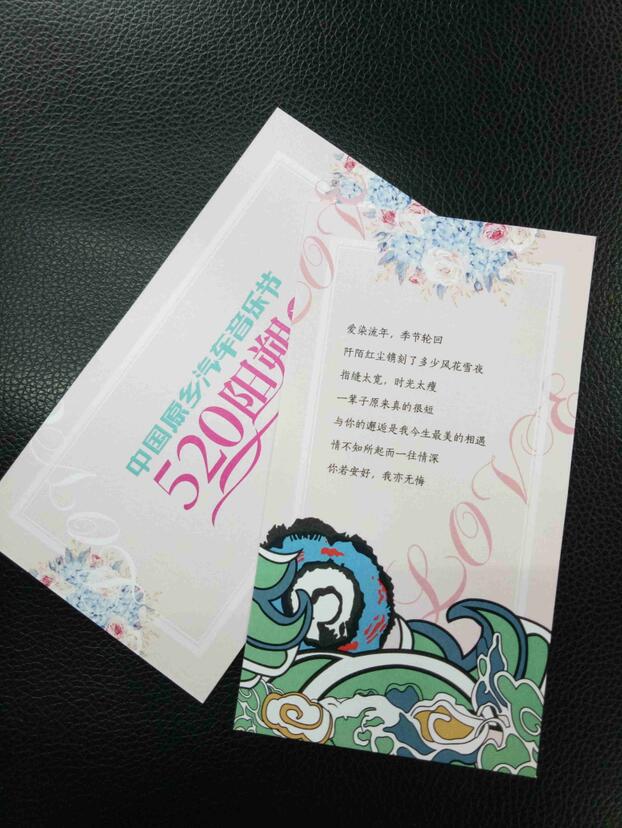 中国原乡汽车音乐节
520阳朔
LOVE
爱染流年，季节轮回
阡陌红尘镌刻了多少风花雪夜
指缝太宽，时光太瘦
一辈子原来真的很短
与你的邂逅是我今生最美的相遇
情不知所起而一往情深
你若安好，我亦无悔
LOVE